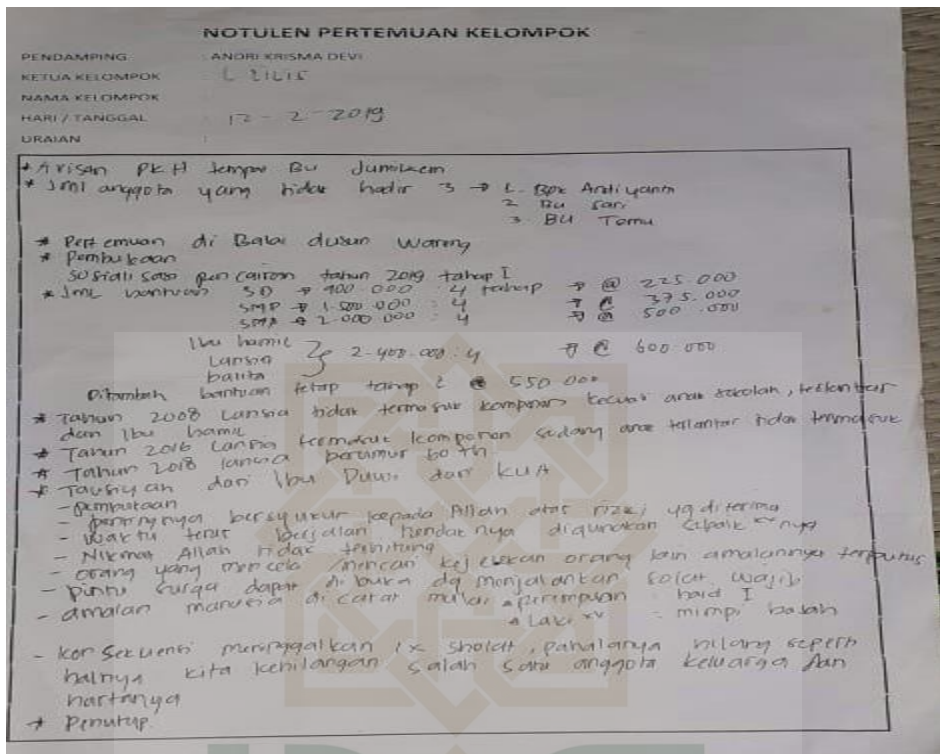 NOTULEN PERTEMUAN KELOMPOK
PENDAMPING : ANDRI KRISMA DEVI
KETUA KELOMPOK : L LILIS
NAMA KELOMPOK
HARI / TANGGAL : 12 - 2 - 2019
URAIAN :
* Arisan PKH tempat Bu Jumikem
* Jml anggota yang tidak hadir 3 → 1. Bpk Andiyanto
2 Bu Sari
3. BU Tomu
* Pertemuan di Balai dusun Wareng
* Pembukaan
Sosialisasi pencairan tahun 2019 tahap I
* Jml bantuan SD → 900.000 : 4 tahap → @ 225.000
SMP → 1.500.000 : 4 → @ 375.000
SMA → 2.000.000 : 4 → @ 500.000
Ibu hamil
Lansia } 2.400.000 : 4 → @ 600.000
balita
Ditambah bantuan tetap tahap I @ 550.000
* Tahun 2008 Lansia tidak termasuk komponen kecuali anak sekolah, terlantar
dan Ibu hamil
* Tahun 2016 Lansia termasuk komponen sedang anak terlantar tidak termasuk
* Tahun 2018 lansia berumur 60 th
* Tausiyah dari Ibu Duwi dari KUA
- pembukaan
- pentingnya bersyukur kepada Allah atas rizki yg diterima
- Waktu terus berjalan hendaknya digunakan sebaik xx nya
- Nikmat Allah tidak terhitung
- orang yang mencela / mencari kejelekan orang lain amalannya terputus
- pintu surga dapat di buka dg menjalankan solat wajib
- amalan manusia di catat mulai * perempuan : haid I
* Laki xx : mimpi basah
- Konsekuensi meninggalkan 1x sholat, pahalanya hilang seperti
halnya kita kehilangan salah satu anggota keluarga dan
hartanya
* Penutup.